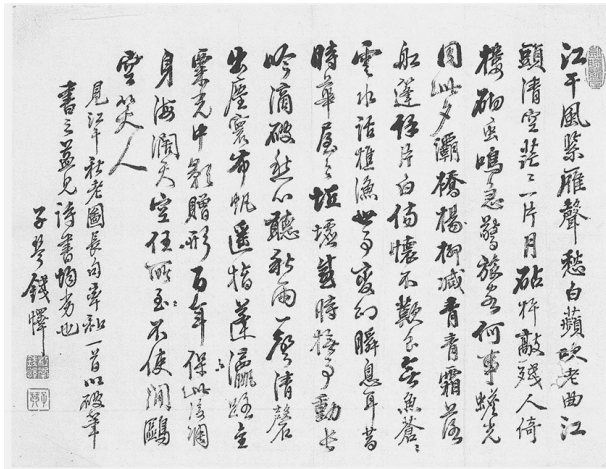 江干風緊雁聲愁白蘋吹老曲江
頭清空茫二一片月砧杵敲殘人倚
樓砌虫鳴急警旅客何事蟾光
圓此夕灞橋楊柳減青青霜落
舩蓬片白懷不歎食無魚蒼〻
雲水話樵漁世事變幻瞬息耳昔
時華屋今垣墟感時撫事動長
吟滴破愁心聽秋雨一聲清磬
出塵寰布帆遙指蓬瀛路
粟光中影贈形百年保此
身海闊天空任所至不使閒鷗
空笑人
見江干秋老圖長句率和一首以破筆
書之益見詩書均劣也
子琴錢懌